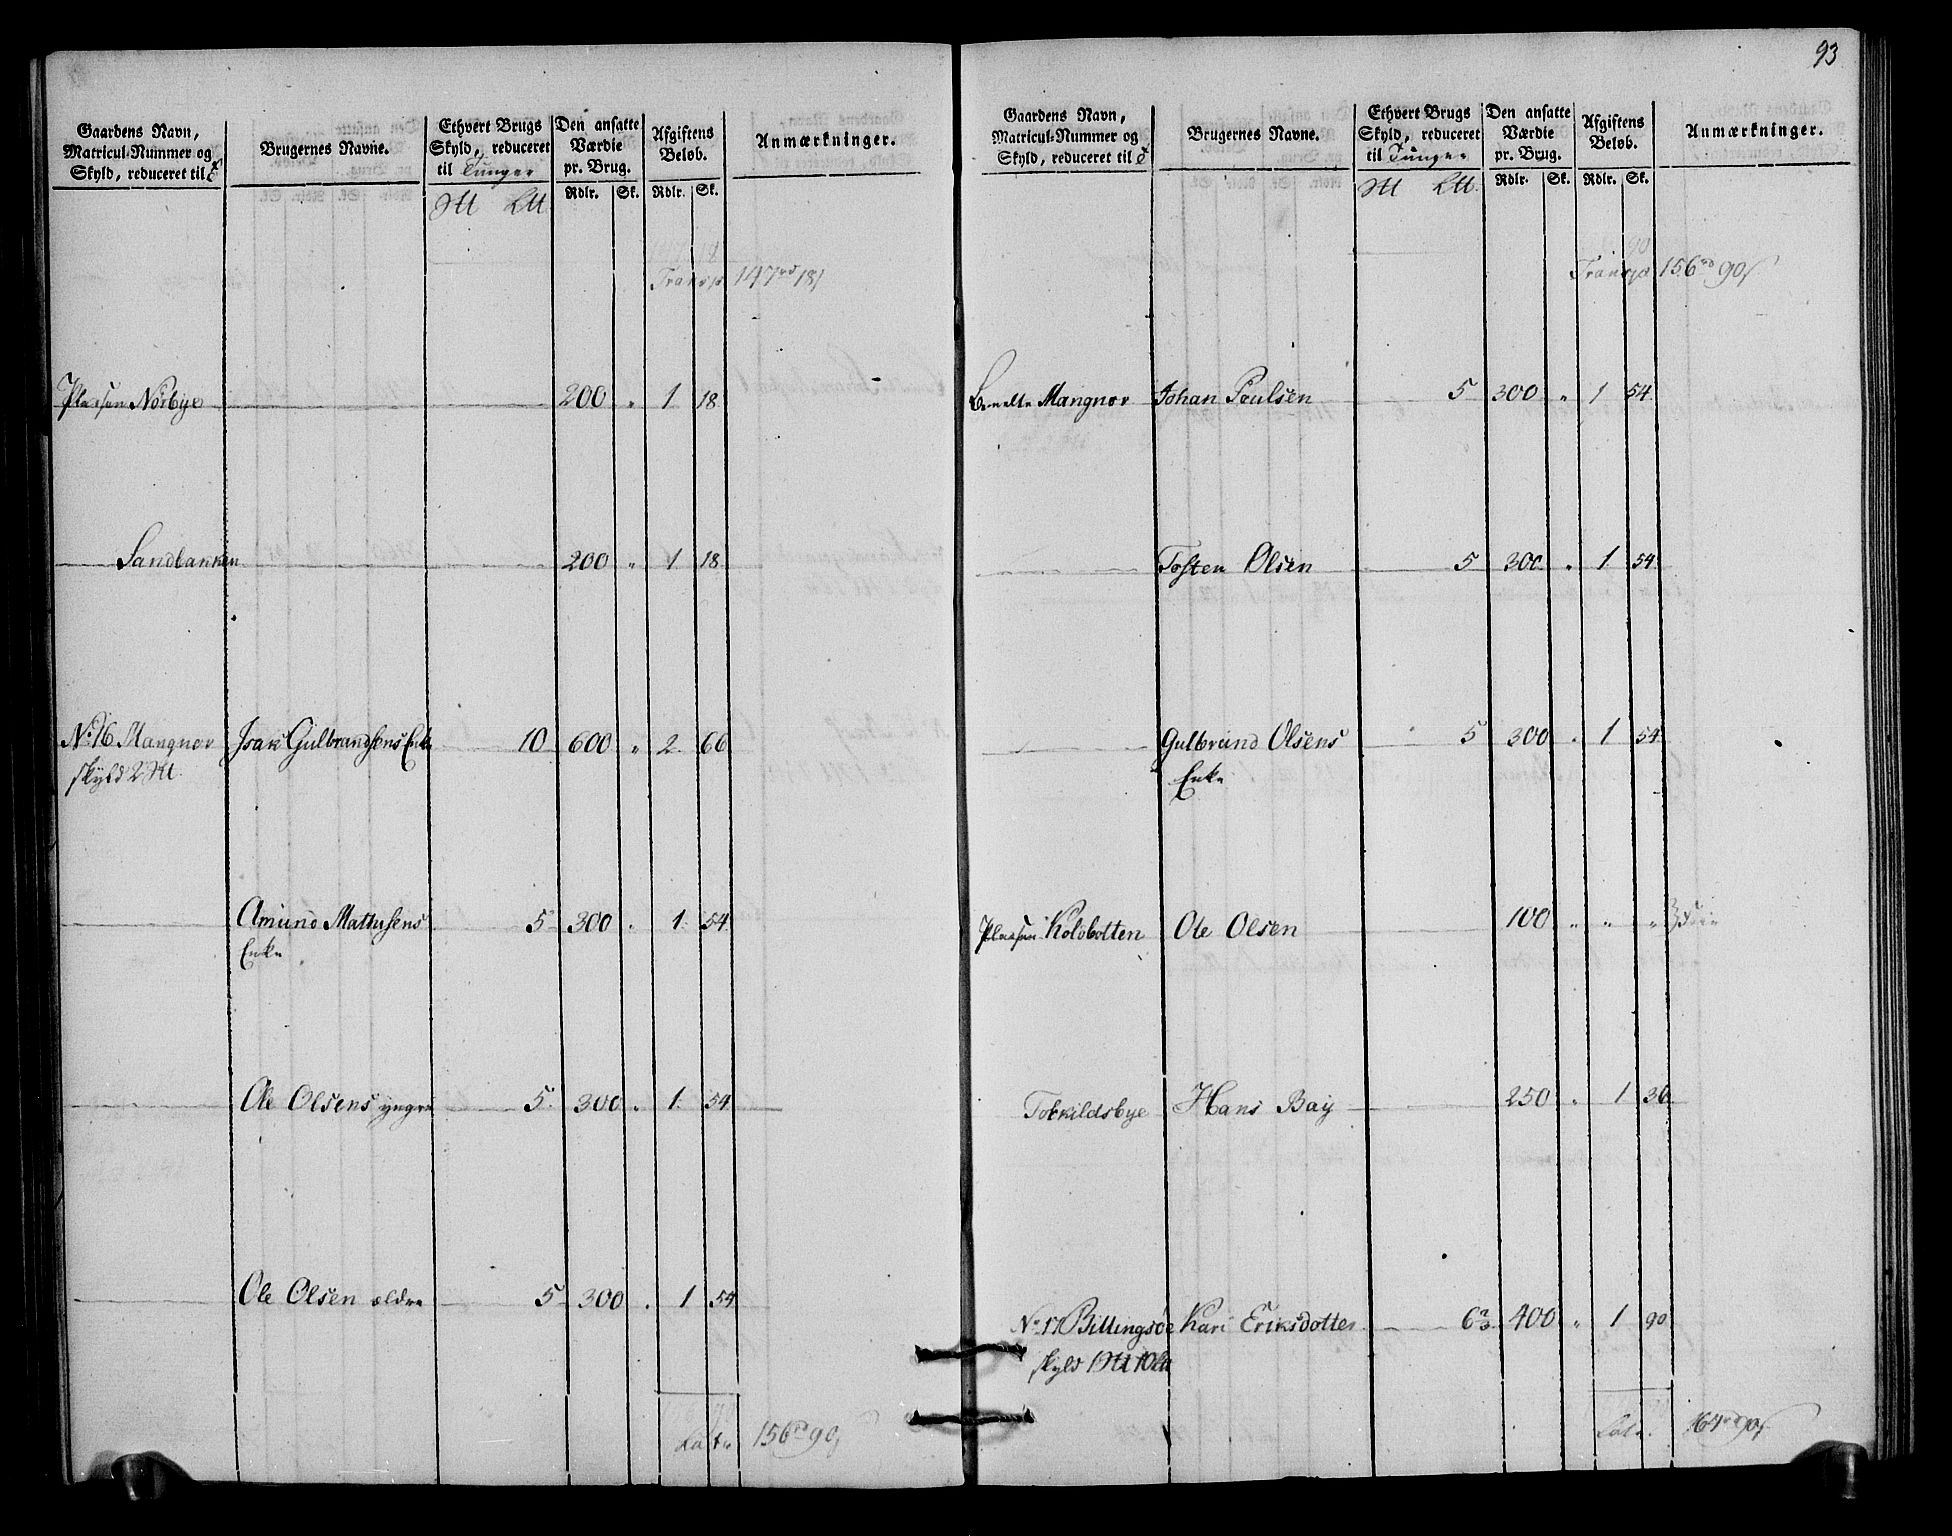 Gaardens Navn,
Matricul-Nummer og
Skyld, reduceret til
Brugernes Navne.
Ethvert Brugs
Skyld, reduceret
til Tunger
Den ansatte
Værdie
pr. Brug.
Afgiftens
Beløb.
Anmærkninger.
Rdlr. Sk. Rdlr. Sk.
Transp 147 rd 18 s
Pladsen Norbye 200 " 1 18
Sandbakken 200 " 1 18
No. 16 Mangnor Isak Gulbrandsens Enke 10 600 " 2 66
skyld 2
Amund Mathisens 5 300 " 1 54
Enke
Ole Olsens yngre 5 300 " 1 54
Ole Olsen ældre 5 300 " 1 54
Late 156 rd 90 s
93
Gaardens Navn,
Matricul-Nummer og
Skyld, reduceret til
Brugernes Navne.
Ethvert Brugs
Skyld, reduceret
til Tunger
Den ansatte
Værdie
pr. Brug.
Afgiftens
Beløb.
Anmærkninger.
Rdlr. Sk. Rdlr. Sk.
Transp 156 rd 90 s
Mangnor Johan Poulsen 5 300 " 1 54
Tosten Olsen 5 300 " 1 54
Gulbrand Olsens 5 300 " 1 54
Enke
Pladsen Kolobotten Ole Olsen 100 " " "
Torkildsbye Hans Bay 250 " 1 36
No. 17 Billingsøe Kari Eriksdotter 6 2/3 400 " 1 90
skyld 1 10
Late 164 rd 90 s